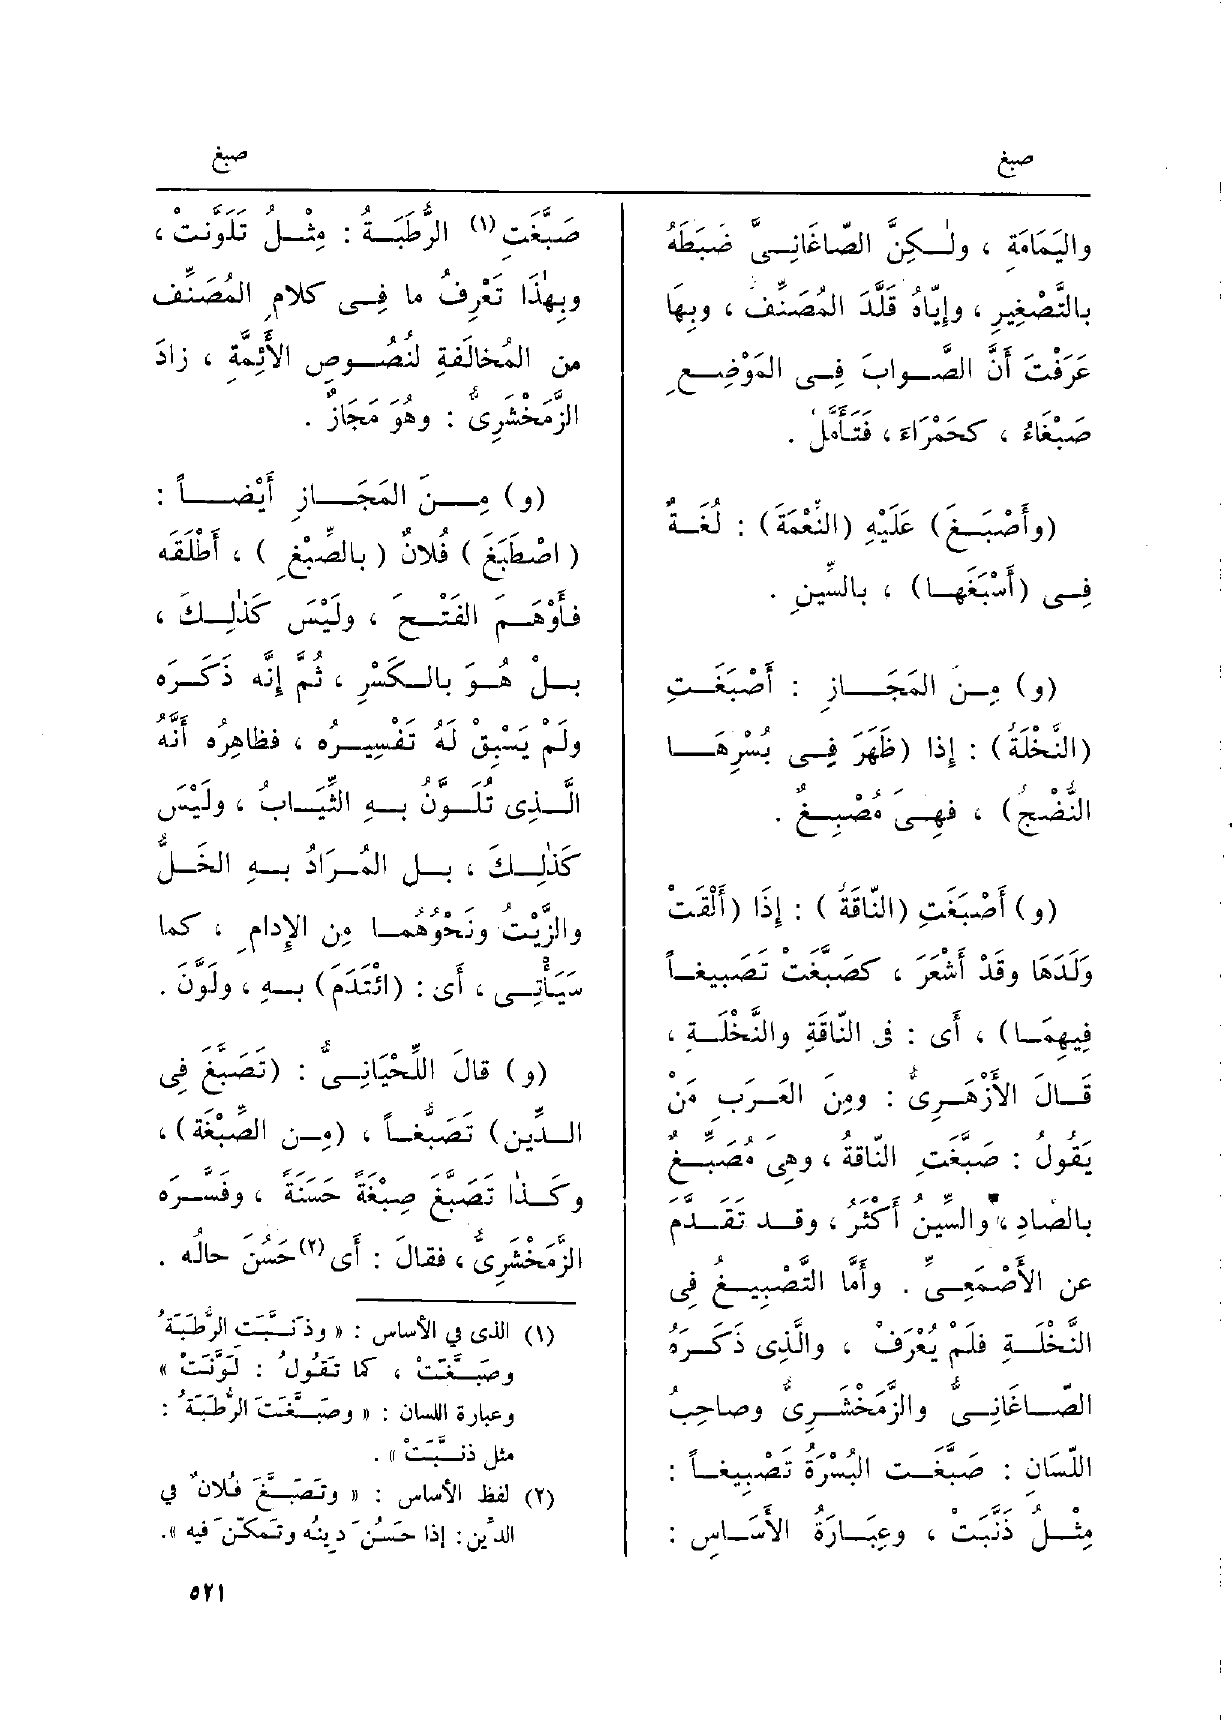 صبغ
صبغ
واليَمَامَةِ ، ولٰكِنَّ الصّاغَانِىَّ ضَبَطَهُ
بالتَّصْغِيرِ ، وإِيّاهُ قَلَّدَ المُصَنِّفُ ، وبِهَا
عَرَفْتَ أَنَّ الصَّوابَ فِى المَوْضِعِ
صَبْغَاءُ ، كحَمْرَاءَ ، فَتَأَمَّلْ .
(وأَصْبَغَ) عَلَيْهِ (النِّعْمَةَ) : لُغَةٌ
فِى (أَسْبَغَها) ، بالسِّينِ .
(و) مِنَ المَجَازِ : أَصْبَغَتِ
(النَّخْلَةُ) : إِذا (ظَهَرَ فِى بُسْرِهَا
النُّضْجُ) ، فهِىَ مُصْبِغٌ .
(و) أَصْبَغَتِ (النّاقَةُ ) : إِذَا (أَلْقَتْ
وَلَدَهَا وقَدْ أَشْعَرَ ، كصَبَّغَتْ تَصْبِيغاً
فِيهِمَا) ، أَى : فى النّاقَةِ والنَّخْلَةِ ،
قَالَ الأَزْهَرِىُّ : ومِنَ العَرَبِ مَنْ
يَقُولُ : صَبَّغَتِ النّاقَةُ ، وهِىَ مُصَبِّغٌ
بالصَّادِ ، والسِّينُ أَكْثَرُ ، وقد تَقَدَّمَ
عن الأَصْمَعِىِّ . وأَمَّا التَّصْبِيغُ فِى
النَّخْلَةِ فلَمْ يُعْرَفْ ، والَّذِى ذَكَرَهُ
الصّاغَانِىُّ والزَّمَخْشَرِىُّ وصاحِبُ
اللِّسَانِ : صَبَّغَت البُسْرَةُ تَصْبِيغاً :
مِثْلُ ذَنَّبَتْ ، وعِبَارَةُ الأَسَاسِ :
صَبَّغَتِ (١) الرُّطَبَةُ : مِثْلُ تَلَوَّنَتْ ،
وبِهٰذَا تَعْرِفُ ما فِى كلامِ المُصَنِّف
من المُخالَفَةِ لنُصُوصِ الأَئِمَّةِ ، زادَ
الزَّمَخْشَرِىُّ : وهُوَ مَجَازٌ .
(و) مِنَ المَجَازِ أَيْضاً :
( اصْطَبَغَ ) فُلانٌ ( بالصِّبْغِ ) ، أَطْلَقَه
فأَوْهَمَ الفَتْحَ ، ولَيْسَ كَذٰلِكَ ،
بلْ هُوَ بالكَسْرِ ، ثُمَّ إِنَّه ذَكَرَه
ولَمْ يَسْبِقْ لَهُ تَفْسِيرُه ، فظاهِرُه أَنَّهُ
الَّذِى تُلَوَّنُ بهِ الثِّيَابُ ، ولَيْسَ
كَذٰلِكَ ، بل المُرَادُ بهِ الخَلُّ
والزَّيْتُ ونَحْوُهُما مِن الإِدامِ ، كما
سَيَأْتِى ، أَى : (ائْتَدَمَ) بهِ ، ولَوَّنَ .
(و) قالَ اللِّحْيَانِىُّ : (تَصَبَّغَ فِى
الدِّينِ) تَصَبُّغاً ، (مِن الصِّبْغَة) ،
وكَذا تَصَبَّغَ صِبْغَةً حَسَنَةً ، وفَسَّرَه
الزَّمَخْشَرِىُّ ، فقالَ : أَى (٢) حَسُنَ حالُه .
(١) الذى في الأساس : « وذَنَّبَت الرُّطَبَةُ
وصَبَّغَتْ ، كما تَقُولُ : لَوَّنَتْ »
وعبارة اللسان : « وصَبَّغَت الرُّطَبَةُ :
مثل ذنَّبَتْ » .
(٢) لفظ الأساس : « وتَصَبَّغَ فُلانٌ في
الدّين : إذا حَسُنَ دينُه وتَمكَّنَ فيه ».
٥٢١